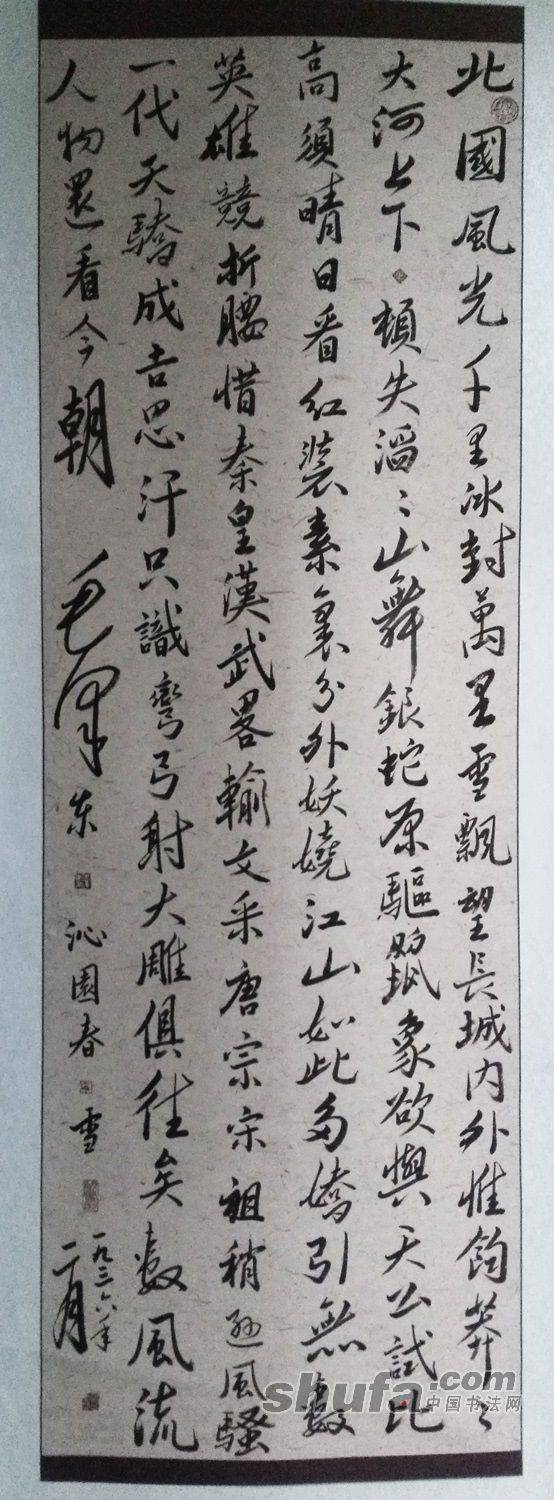 北國風光千里冰封萬里雪飄望長城内外惟餘莽々
大河上下頓失滔々山舞銀蛇原驅蠟象欲與天公試比
高須晴日看紅裝素裹分外妖嬈江山如此多嬌引無數
英雄競折腰惜秦皇漢武畧輸文采唐宗宋祖稍遜風騷
一代天驕成吉思汗只識彎弓射大雕俱往矣數風流
人物還看今朝 毛澤东 沁園春 雪 一九三六年二月
shufa.com
中国书法网